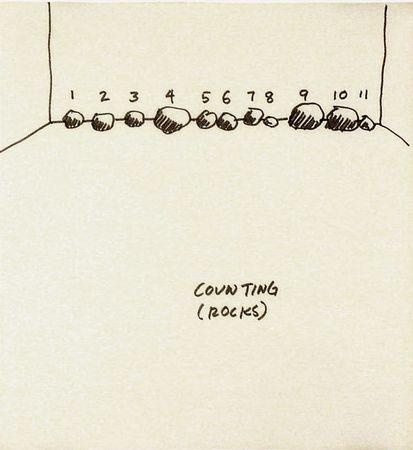 1 2 3 4 5 6 7 8 9 10 11
COUNTING
(ROCKS)